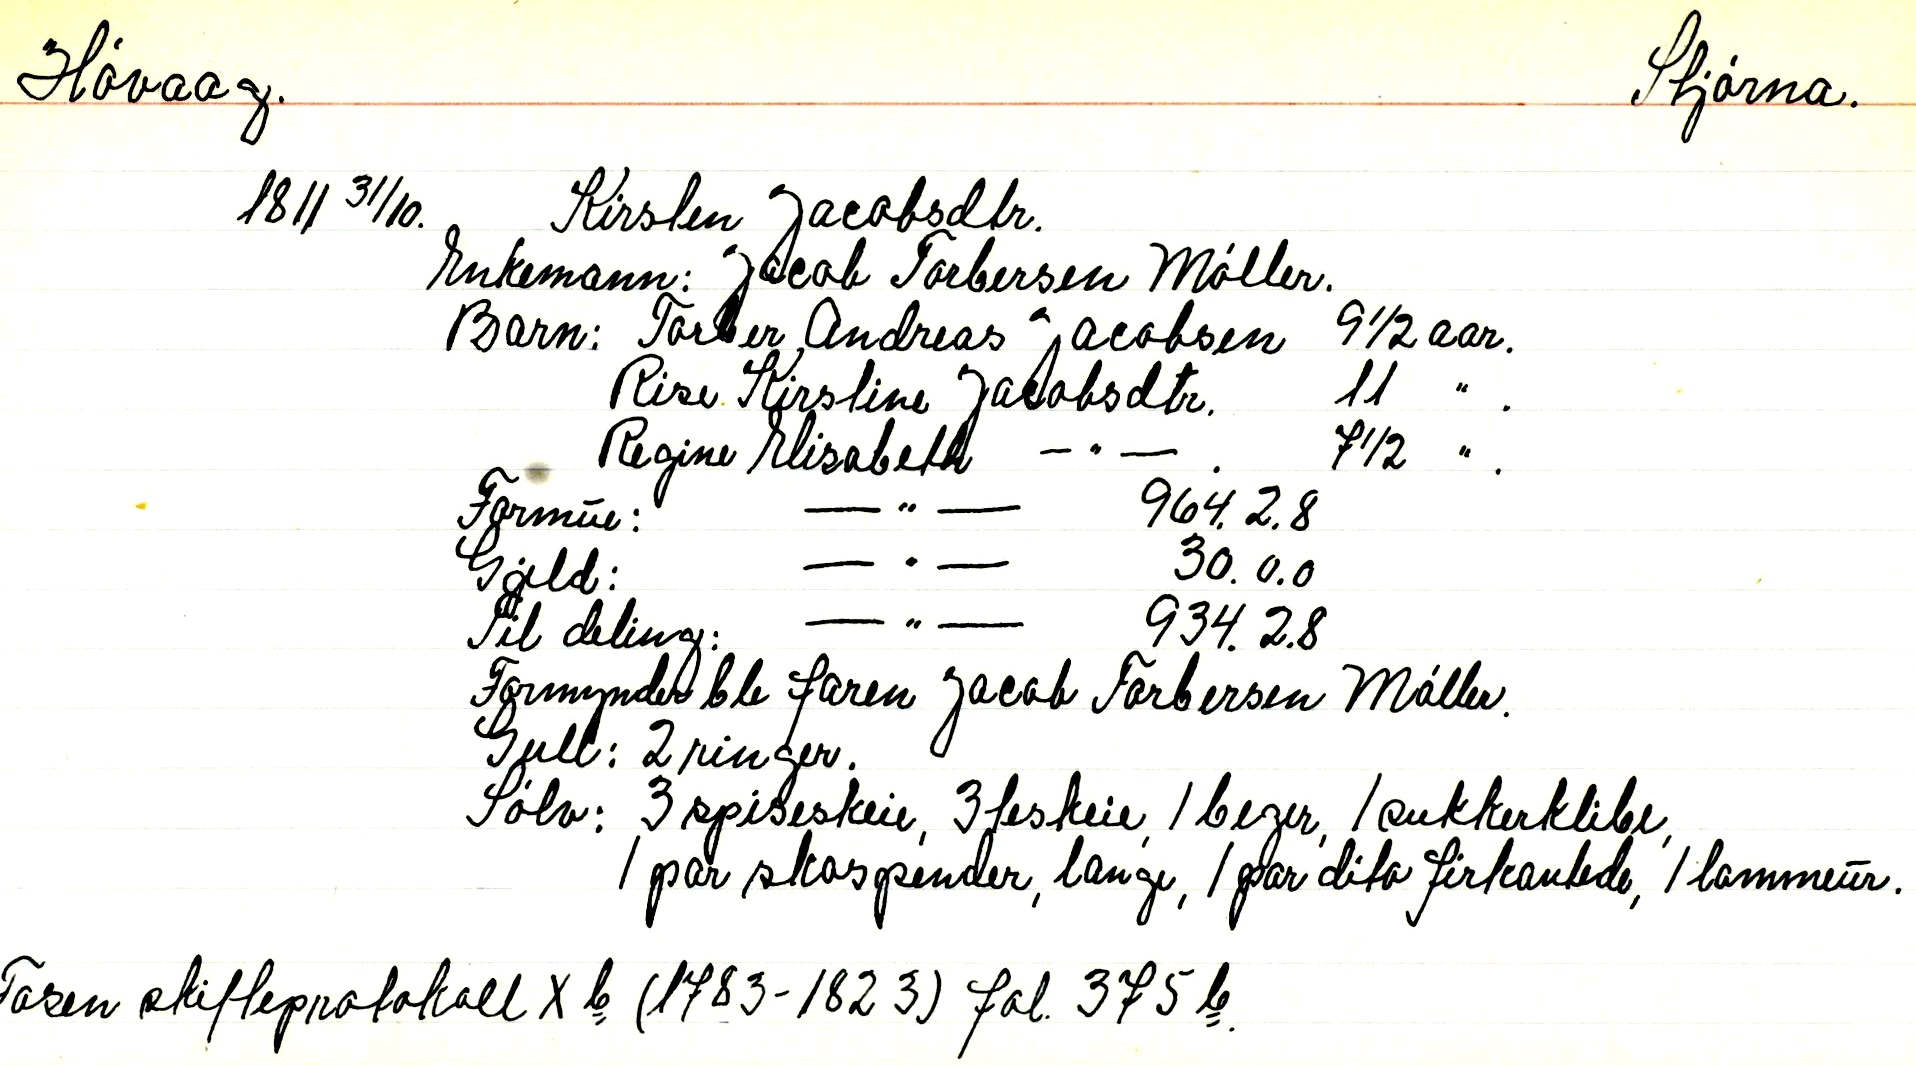 Hóvaag. Stjórna.
1811 31/10. Kirsten Jacobsdtr.
Enkemann: Jacob Torbersen Móller.
Barn: Torber Andreas Jacobsen 9 1/2 aar.
Rise Kirstine Jacobsdtr. 11 " .
Regine Elisabeth — " — . 7 1/2 " .
Formūe: — " — 964. 2. 8
Gjeld: — " — 30. 0. 0
Til deling: — " — 934. 2. 8
Formynder ble faren Jacob Torbersen Móller.
Gull: 2 ringer.
Sólv: 3 spiseskeie, 3 teskeie, 1 beger, 1 sukkerklibe,
1 par skospender, lange, 1 par dito firkantede, 1 lommeūr.
Tosen skifteprotokoll X b (1783-1823) fol. 375 b.